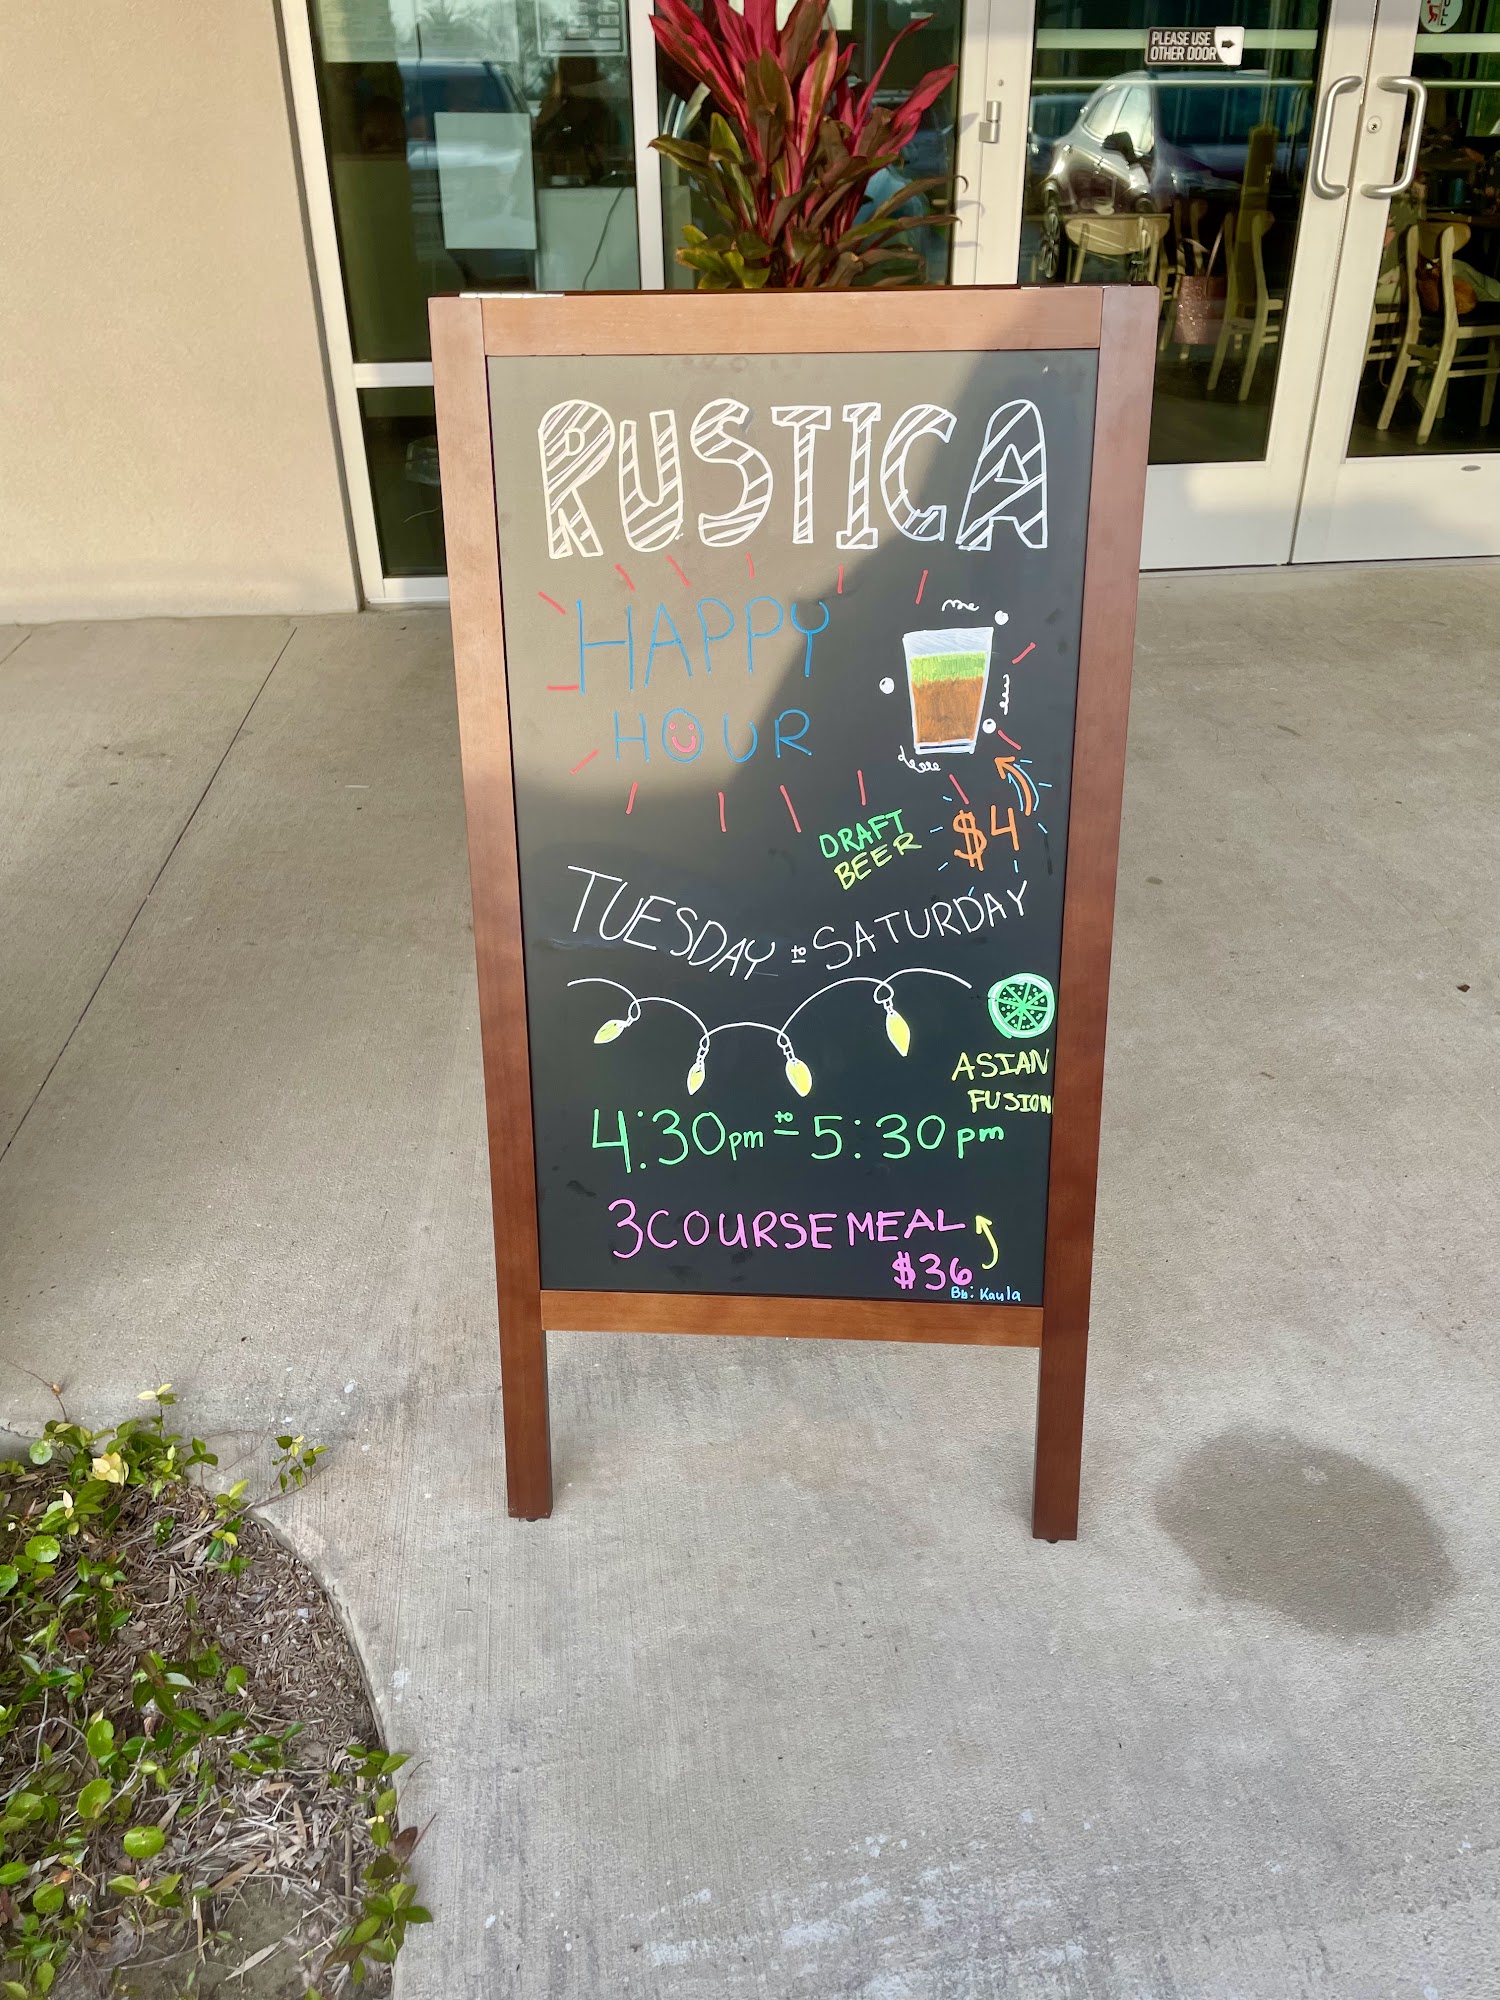 PLEASE USE
OTHER DOOR
RUSTICA
HAPPY
HOUR
DRAFT
BEER
$4
TUESDAY to SATURDAY
ASIAN
FUSION
4:30pm to 5:30pm
3 COURSE MEAL
$36
By: Kayla